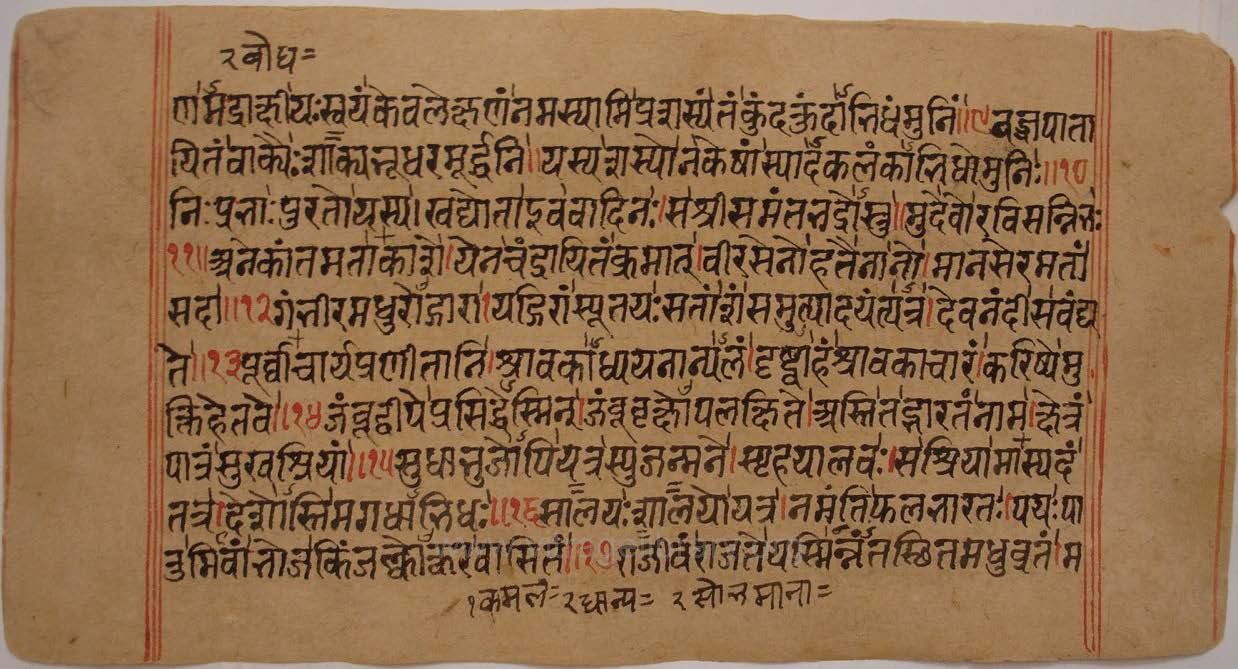 २ बोध=
र्णमद्राक्षीयः स्वयं केवलेक्षणं नमस्यामि प्रशस्यं तं कुंदकुंदाभिधं मुनिं ॥९ वज्रपाता
यितं वाक्यैः शाक्यभूधरमूर्द्धनि । यस्य शस्यो न केषां स्यादकलंकाभिधो मुनिः ॥१०
निःप्रभाः पुरतो यस्य । खद्योता इव वादिनः । स श्रीसमंतभद्रोस्तु ॥ मुदे वो रविसन्निभः
११॥ अनेकांतमताकाशे । येन चंद्रायितं क्रमात् । वीरसेनो हतैनानो । मानसे रमतां
सदा ॥१२ गंभीरमधुरोद्गारा । यद्गिरां स्फूतयः सतां । शं समुत्पादयंत्यत्र । देवनंदी स वंद्य
ते ॥१३ पूर्व्वाचार्यप्रणीतानि । श्रावकाध्ययनान्यलं । दृष्ट्वाहं श्रावकाचारं । करिष्ये मु
क्तिहेतवे ॥१४ जंबूद्वीपे प्रसिद्धेस्मिन् । जंबूवृक्षोपलक्षिते । अस्ति तद्भारतं नाम । क्षेत्रं
पात्रं सुखश्रियां ॥१५ सुधाभुजोपि यत्र स्पुजन्मने । स्पृहयालवः । स श्रियामास्पदं
तत्र । देशोस्ति मगधाभिधः ॥१६ सालयः शालयो यत्र । नमंति फलभारतः । पयः पा
तुमिवांभोजकिंजल्कोत्करवासितं ॥१७ राजीवं राजते यस्मिन्नंतस्थितमधुव्रतं । म
१ कमल= २ धान्य= २ सोभमाना=